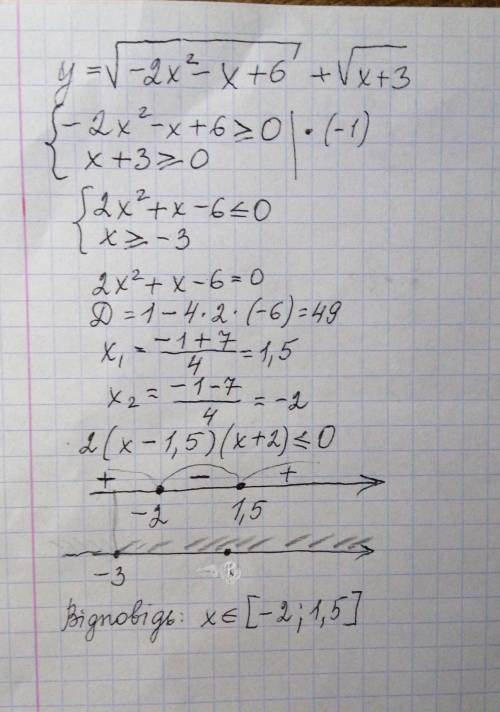 y = √(-2x² - x + 6) + √(x+3)
{ -2x² - x + 6 ≥ 0 | · (-1)
x + 3 ≥ 0
{ 2x² + x - 6 ≤ 0
x ≥ -3
2x² + x - 6 = 0
D = 1 - 4 · 2 · (-6) = 49
x₁ = (-1 + 7)/4 = 1,5
x₂ = (-1 - 7)/4 = -2
2(x - 1,5)(x + 2) ≤ 0
+ - +
-2 1,5
-3
Відповідь: x ∈ [-2; 1,5]